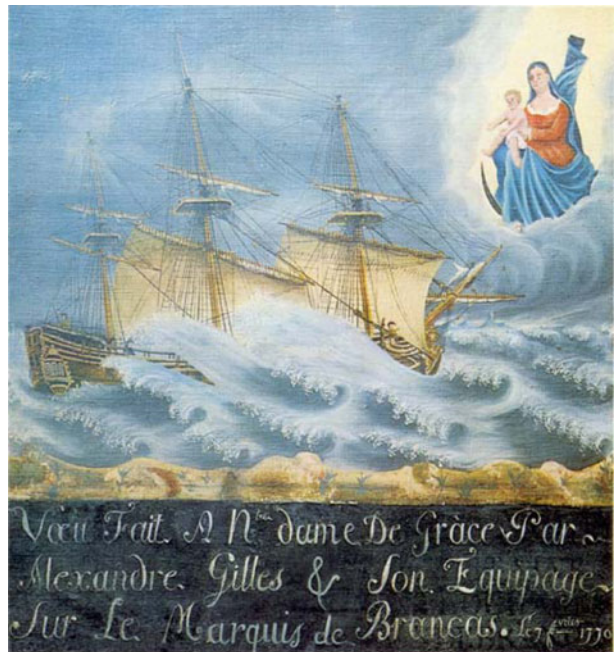 Vœu Fait A N.tre dame De Grâce Par
Alexandre Gilles & Son Equipage
Sur Le Marquis de Brancas. Le 7